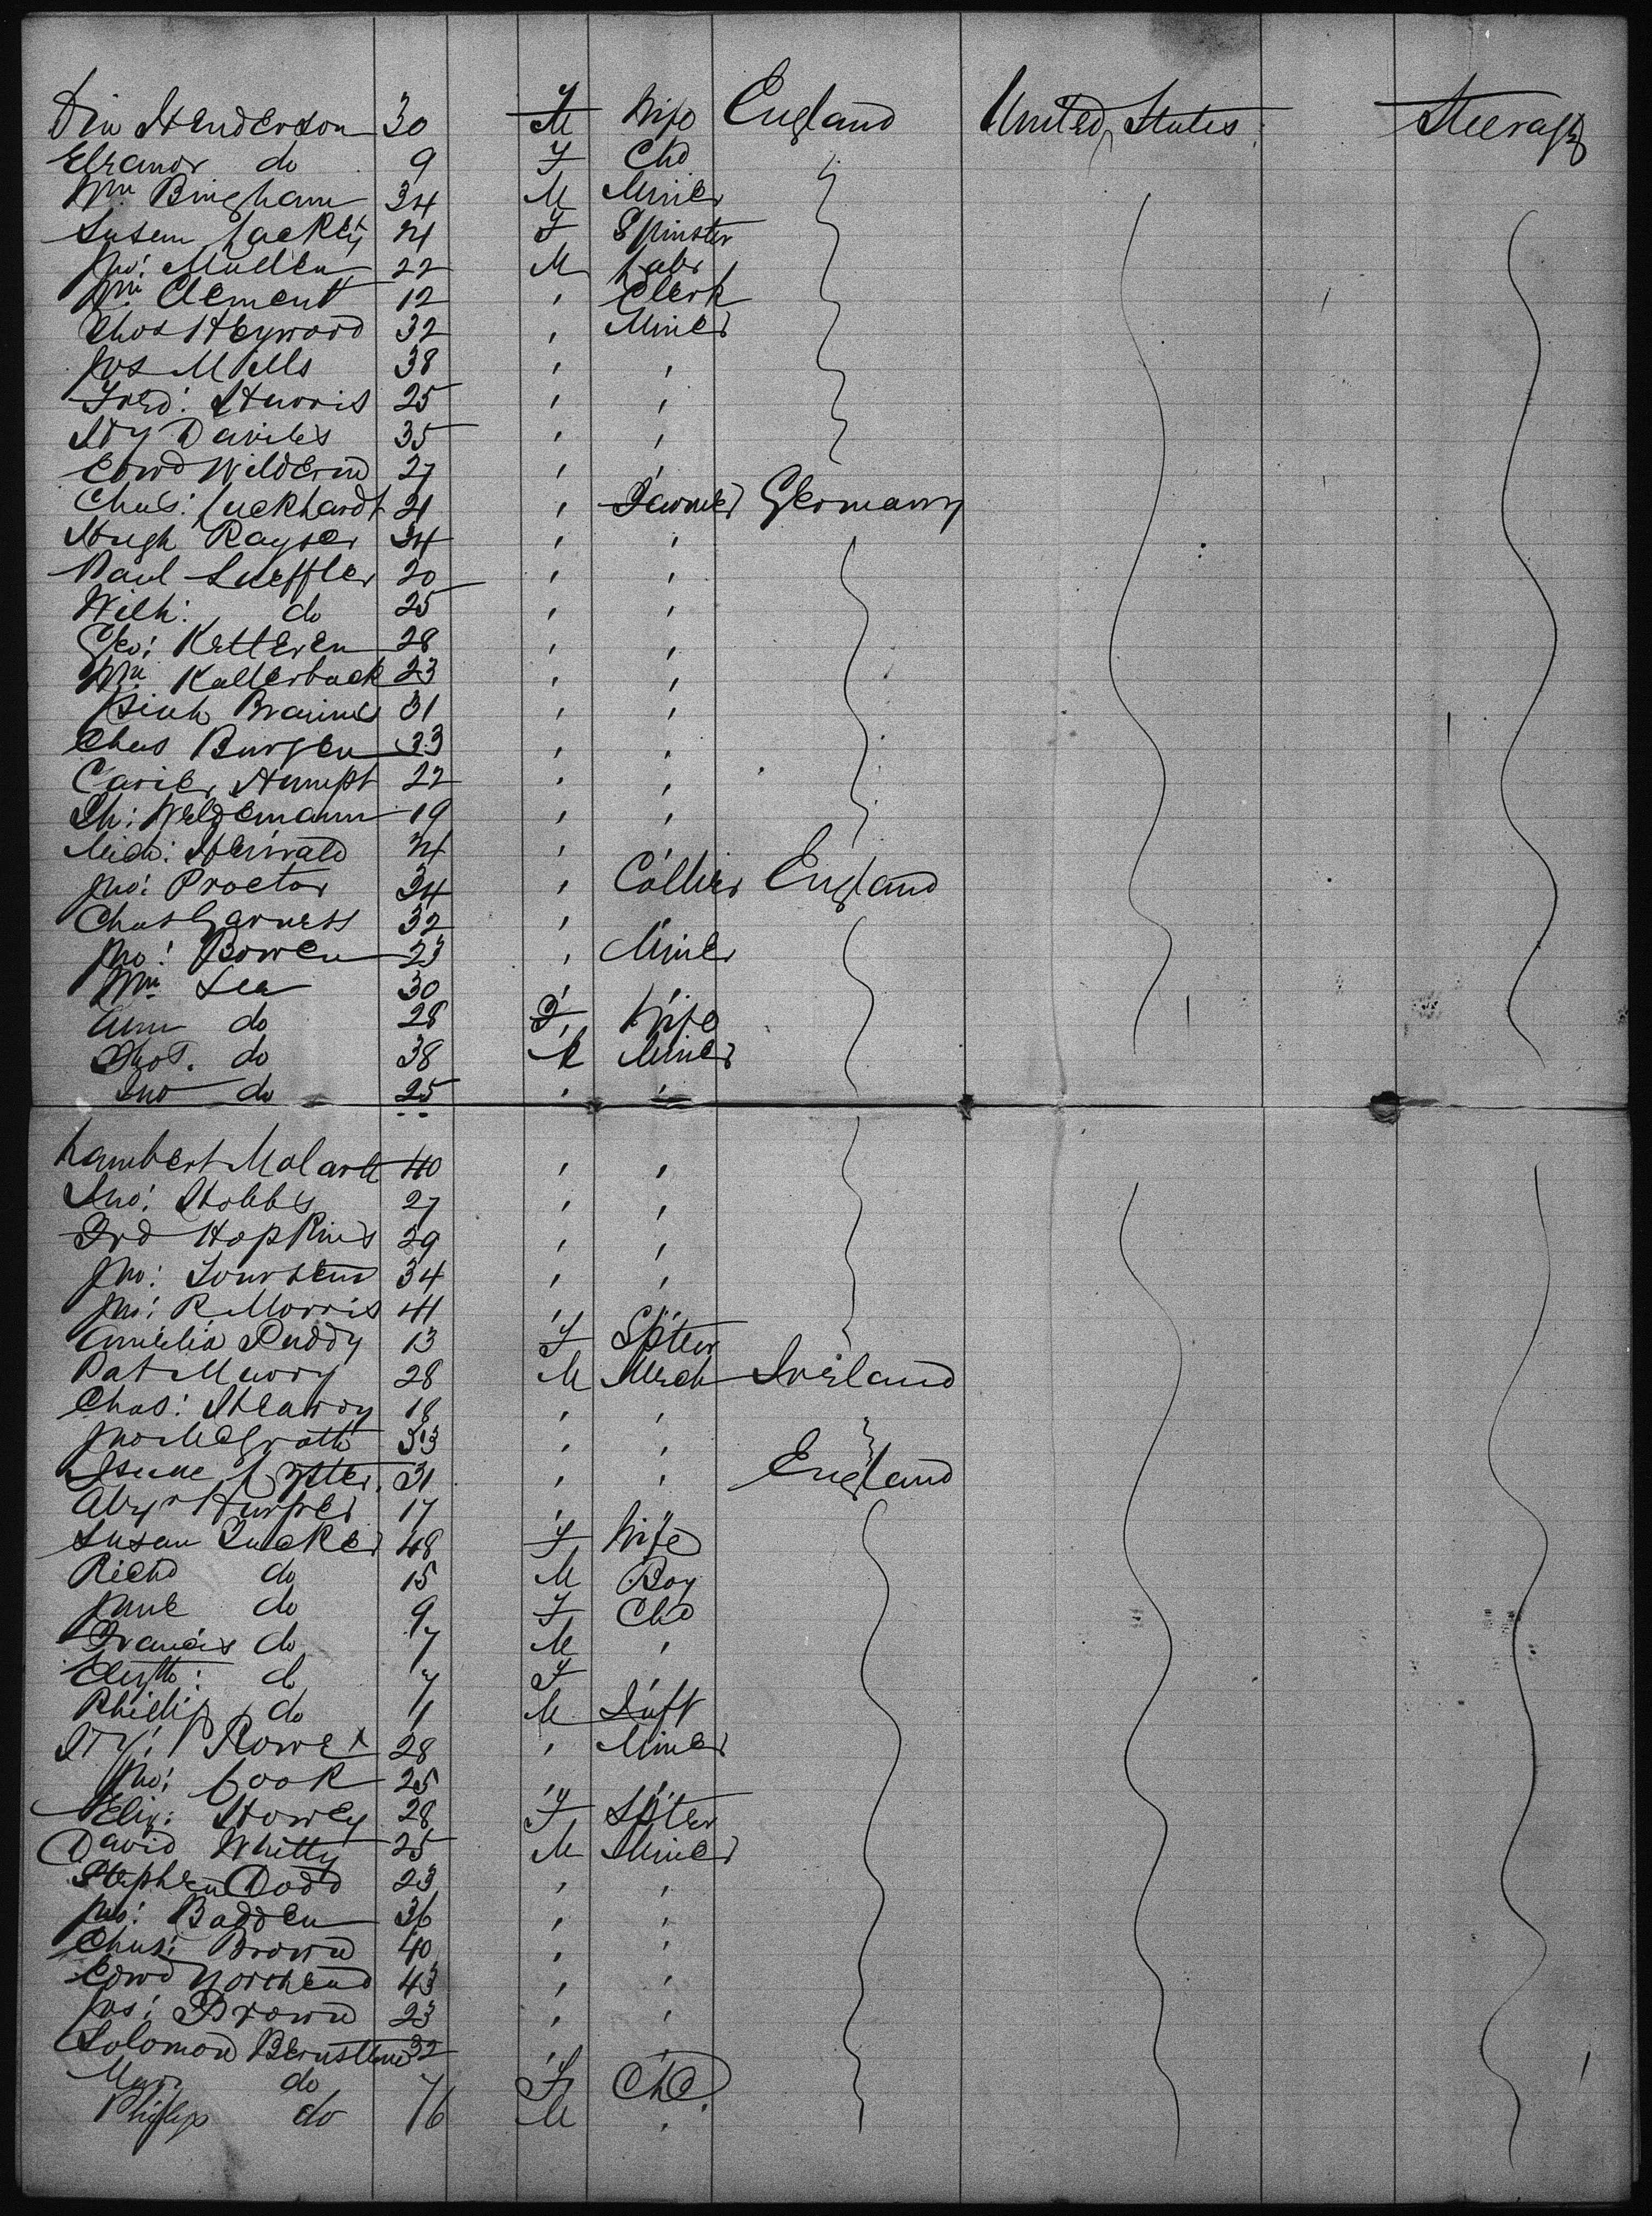 Henderson 30 F M Wife England United States Steerage
Eleanor do 9 F Chd
Wm Bingham 34 M Miner
Susan Lackey 21 F Spinster
Jno: Mullen 22 M Labr
Wm Clement 12 ' Clerk
Thos Heyward 32 ' Miner
Jos Mills 38 ' '
Fred: Harris 25 ' '
Hy Davies 35 ' '
Edwd 27 ' '
Chas: Luckhardt 21 ' Farmer Germany
Hugh Rayser 34 ' '
Paul Sueffler 20 ' '
Wilh: do 25 ' '
Geo: Ketteren 28 ' '
Wm Kallerback 23 ' '
Braines 31 ' '
Chas Burgen 33 ' '
22 ' '
Weldemann 19 ' '
Mich: Herwald '
Jno: Proctor 34 ' Collier England
Chas Garness 32 '
Jno: Bowen 23 ' Miner
Wm Lea 30 ' '
Ann do 28 F Wife
Thos. do 38 M Miner
Jno do 25 ' '
Lambert 40 ' '
Jno: Hobbs 27 ' '
Frd Hopkins 29 ' '
Jno: 34 ' '
Jno: R Morris 41 ' '
Amelia Ruddy 13 F Spster
Pat Murry 28 M Mech Ireland
Chas: 18 ' '
Jno McGrath 33 ' '
Lyster 31 ' ' England
Harper 17 ' '
Susan Tucker 48 F Wife
Richd do 15 M Boy
Jane do 9 F Chd
Francis do 7 M '
Elizth: do F '
Phillip do M Inft
Hy: Rowe 28 ' Miner
Jno: Cook 25 ' '
Eliz: Howey 28 F Spster
David Whitty 25 M Miner
Stephen Dodd 23 ' '
Jno: Badden 36 ' '
Chas: Brown 40 ' '
Edwd Northend 43 ' '
Jos: Brown 23 ' '
Solomon Bernstein 32 ' '
Mary do 7 F Chd
Philip do 6 M '